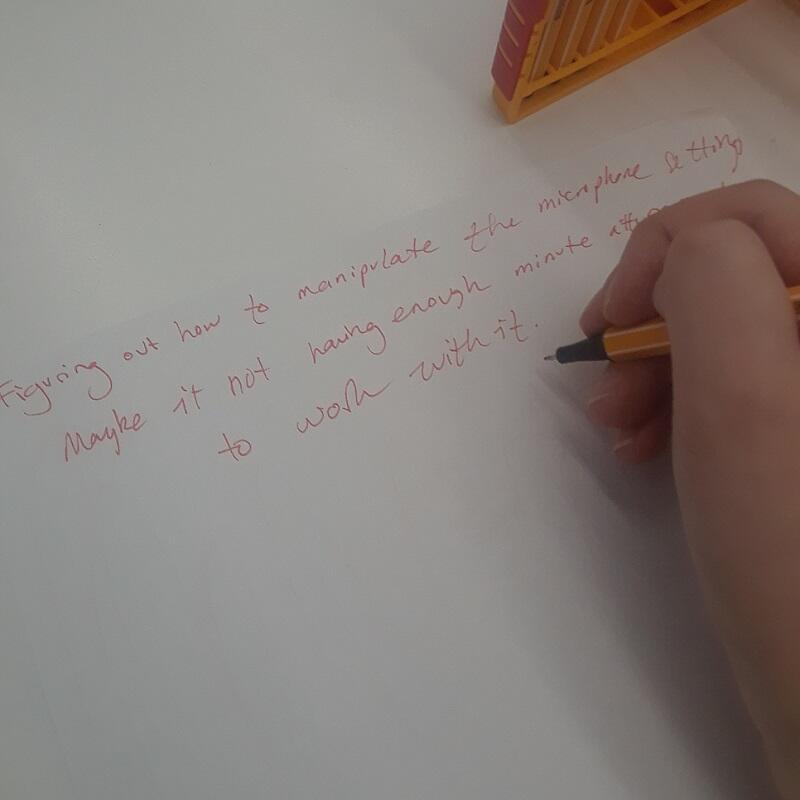 Figuring out how to manipulate the microphone setting
Mayke it not having enough minute
to work with it.